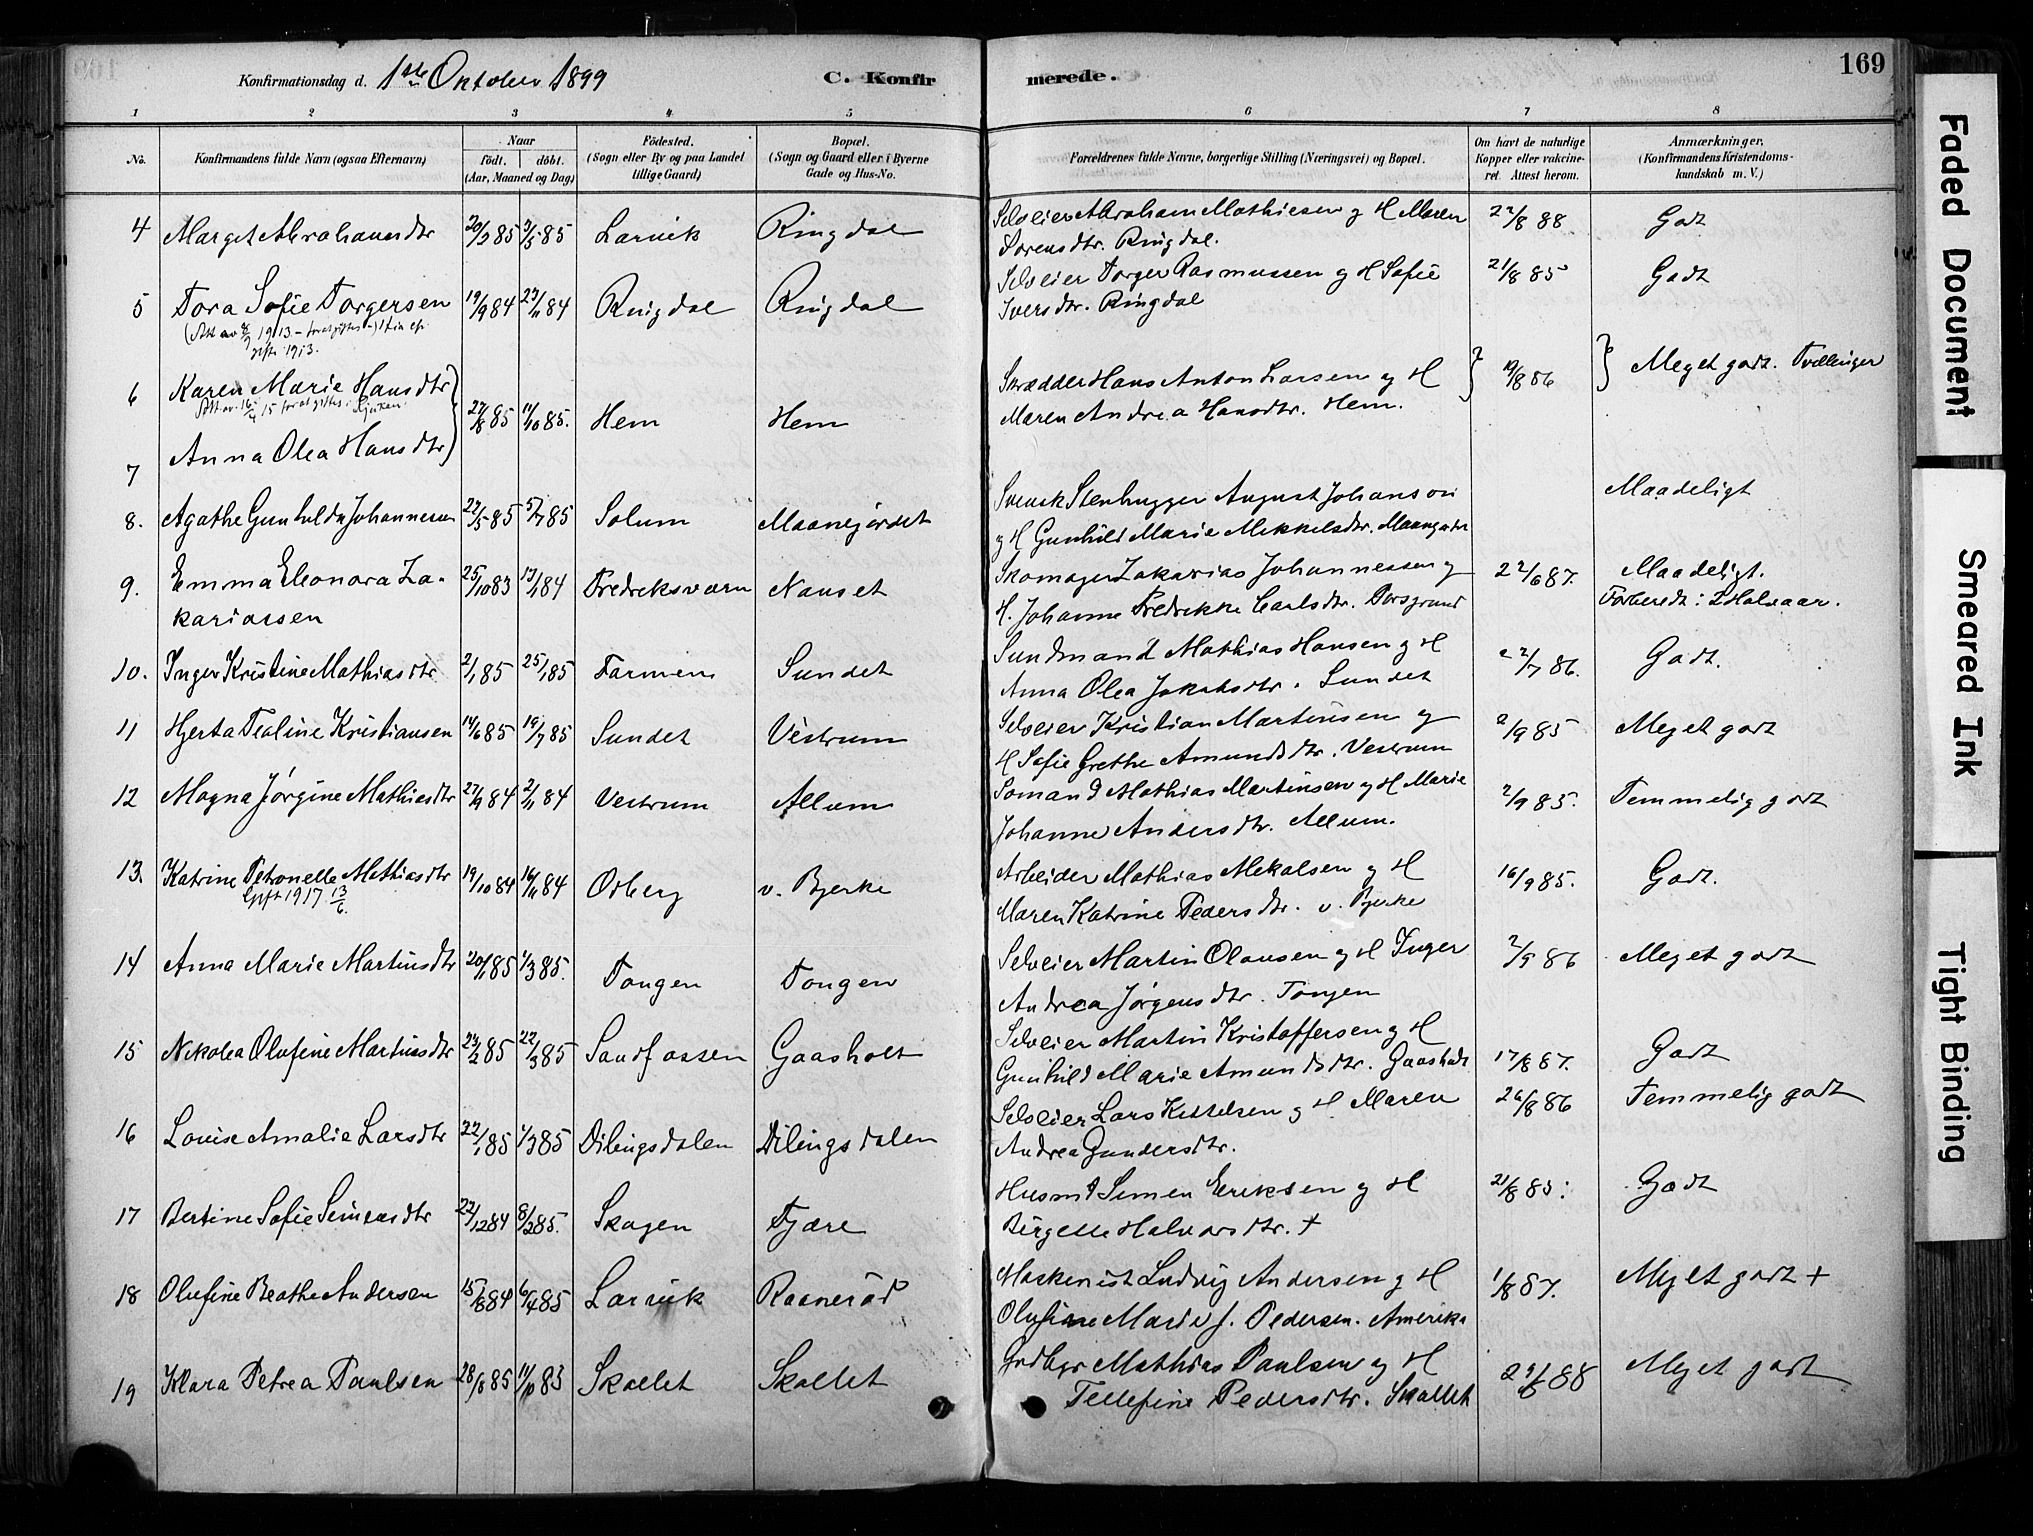 Konfirmationsdag d. 1ste Oktober 1899
C. Konfirmerede.
169
1 2 3 4 5 6 7 8
No.
Konfirmandens fulde Navn (ogsaa Efternavn)
Naar
födt. döbt.
(Aar, Maaned og Dag)
Födested.
(Sogn eller By og paa Landet
tillige Gaard)
Bopæl.
(Sogn og Gaard eller i Byerne
Gade og Hus-No.
Forældrenes fulde Navne, borgerlige Stilling (Næringsvei) og Bopæl.
Om havt de naturlige
Kopper eller vakcine-
ret. Attest herom.
Anmærkninger,
(Konfirmandens Kristendoms-
kundskab m. V.)
4 Marget Abrahamsdtr 20/3 85 3/5 85 Larvik Ringdal Selveier Abraham Mathiesen og H Maren 22/8 88 Godt
Sorensdtr. Ringdal.
5 Tora Sofie Torgersen 19/9 84 23/11 84 Ringdal Ringdal Selveier Torger Rasmussen og H Sofie 21/8 85 Godt
Iversdtr. Ringdal
1913
gift 1913.
6 Karen Marie Hansdtr 27/8 85 11/10 85. Hem Hem Skrædder Hans Anton Larsen og H 19/8 86 Meget godt. Tvillinger
Maren Andrea Hansdtr. Hem.
7 Anna Olea Hansdtr
8. Agathe Gunhilda Johannesen 22/5 85 5/7 85 Solum Maanejordet Svensk Stenhugger August Johanson Maadeligt
og H Gunhild Marie Mikkelsdtr.
9. Emma Eleonora Za- 25/10 83 13/1 84 Fredriksværn Nanset Skomager Zakarias Johannessen og 22/6 87. Maadeligt.
kariassen H. Johanne Fredrikke Carlsdtr. Porsgrund Forberedt i
10. Inger Kristine Mathiasdtr 2/1 85 25/1 85 Farmen Sundet Sundmand Mathias Hansen og H 22/7 86. Godt.
Anna Olea Jakobsdtr. Sundet
11 Hjerta Tealine Kristiansen 14/6 85 19/7 85 Sundet Vestrum Selveier Kristian Martinsen og 2/9 85 Meget godt
H Sofie Grethe Amundsdtr. Vestrum
12 Magna Jørgine Mathiasdtr 27/9 84 2/11 84 Vestrum Allum Somand Mathias Martinsen og H Marie 2/9 85. Temmelig godt
Johanne Andersdtr. Allum.
13. Katrine Petronelle Mathiasdtr 19/10 84 16/11 84 Odberg v. Bjerke Arbeider Mathias Mikalsen og H 16/9 85. Godt.
Gift 1917 13/6. Maren Katrine Pedersdtr. v. Bjerke
14 Anna Marie Martinsdtr 20/1 85 1/3 85. Tangen Tangen Selveier Martin Olausen og H Inger 2/9 86 Meget godt
Andrea Jørgensdtr. Tangen
15 Nikolea Olufine Martinsdtr 23/2 85 22/3 85 Sandfossen Gaasholt Selveier Martin Kristoffersen og H
Gunhild Marie Amundsdtr. Gaasholt 17/8 87. Godt
16 Louise Amalie Larsdtr 22/1 85 1/3 85 Dilingsdalen Dilingsdalen Selveier Lars Kittelsen og H Maren 26/8 86 Temmelig godt
Andrea Gundersdtr.
17 Bertine Sofie Simensdtr 22/12 84 8/2 85. Skogen Fjære Husmd Simen Eriksen og H 21/8 85. Godt
Birgitte Halvorsdtr. +
18 Olufine Beathe Andersen 15/8 84 6/4 85 Larvik Raanerød Maskenist Ludvig Andersen og H 1/8 87. Meget godt +
Olufine Marie f. Pedersen. Amerika
19 Klara Petrea Paulsen 28/8 85 11/10 83 Skallet Skallet Mathias Paulsen og H 29/6 88 Meget godt
Tellefine Pedersdtr. Skallet
Faded Document
Smeared Ink
Tight Binding